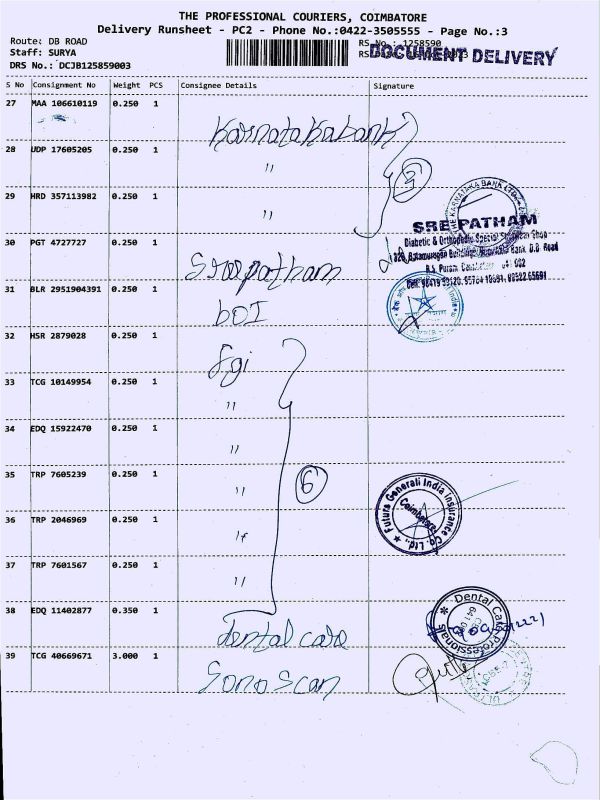 THE PROFESSIONAL COURIERS, COIMBATORE
Delivery Runsheet - PC2 - Phone No.:0422-3505555 - Page No.:3
Route: DB ROAD
RS No.: 1258590
Staff: SURYA
DOCUMENT DELIVERY
DRS No.: DCJB125859003
S No Consignment No Weight PCS Consignee Details Signature
27 MAA 106610119 0.250 1 Karnataka bank
28 UDP 17605205 0.250 1 "
29 HRD 357113982 0.250 1 "
3
SRE PATHAM
Diabetic & Orthopedic Special Shop
30 PGT 4727727 0.250 1 Sreepatham
31 BLR 2951904391 0.250 1 BOI
32 HSR 2879028 0.250 1 Fgi
33 TCG 10149954 0.250 1 "
34 EDQ 15922470 0.250 1 "
35 TRP 7605239 0.250 1 "
6
Future Generali India Insurance Co. Ltd.,
Coimbatore
36 TRP 2046969 0.250 1 "
37 TRP 7601567 0.250 1 "
38 EDQ 11402877 0.350 1 Dental care
Dental Care Professionals
39 TCG 40669671 3.000 1 Sono Scan